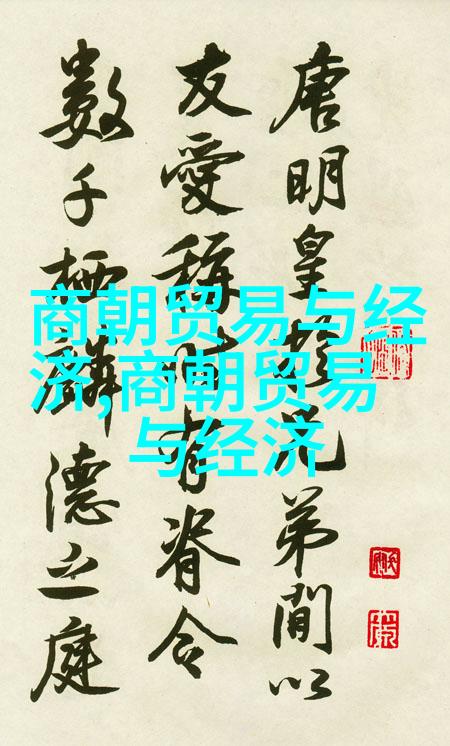 唐明皇兄弟間以
友愛稱有脊令
數千栖麟德之庭
商朝贸易与经
济,商朝贸易
与经济